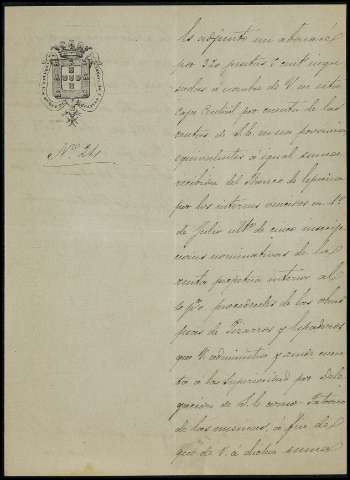 Nº 24
Es adjunto un abonaré
por 320 pesetas 5 cent ingre
sadas á nombre de V. en esta
Caja Central por cuenta de las
rentas de S. E. en esa provincia
equivalentes á igual suma
recibida del Banco de España
por los intereses vencidos en 1º
de Julio ultº de cinco inscrip
ciones nominativas de la
renta perpetua interior al
4 pº procedentes de las obras
pias de Pizarros y
que V. administra y rinde cuen
ta á la Superioridad por dele
gacion de S. E. como Patrono
de las mismas, á fin de
que dé V. á dicha suma